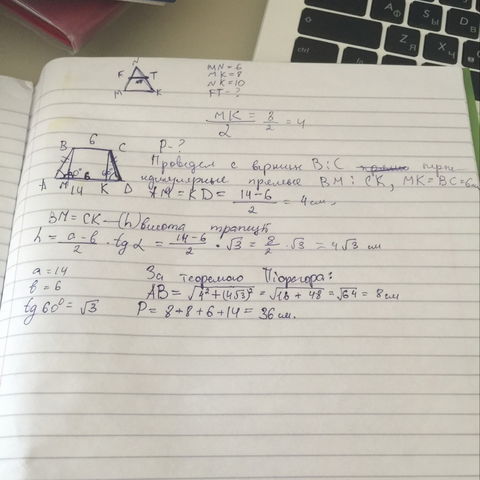 N
F T
M K
MN=6
MK=8
NK=10
FT=?
MK/2 = 8/2 = 4
B 6 C
60°
A M 6 K D
14
P-?
Проведем с вершин В і С перпе
ндикулярные прямые BM і CK, MK=BC=6см
AM=KD= (14-6)/2 = 4см,
BM=CK-(h)висота трапеції
h = (a-b)/2 · tg α = (14-6)/2 · √3 = 8/2 · √3 = 4√3 см
a=14
b=6
tg 60° = √3
За теоремою Піфагора:
AB = √(4²+(4√3)²) = √(16+48) = √64 = 8см
P= 8+8+6+14= 36 см.
Ф
Ы
В
Я
Ч
ctrl